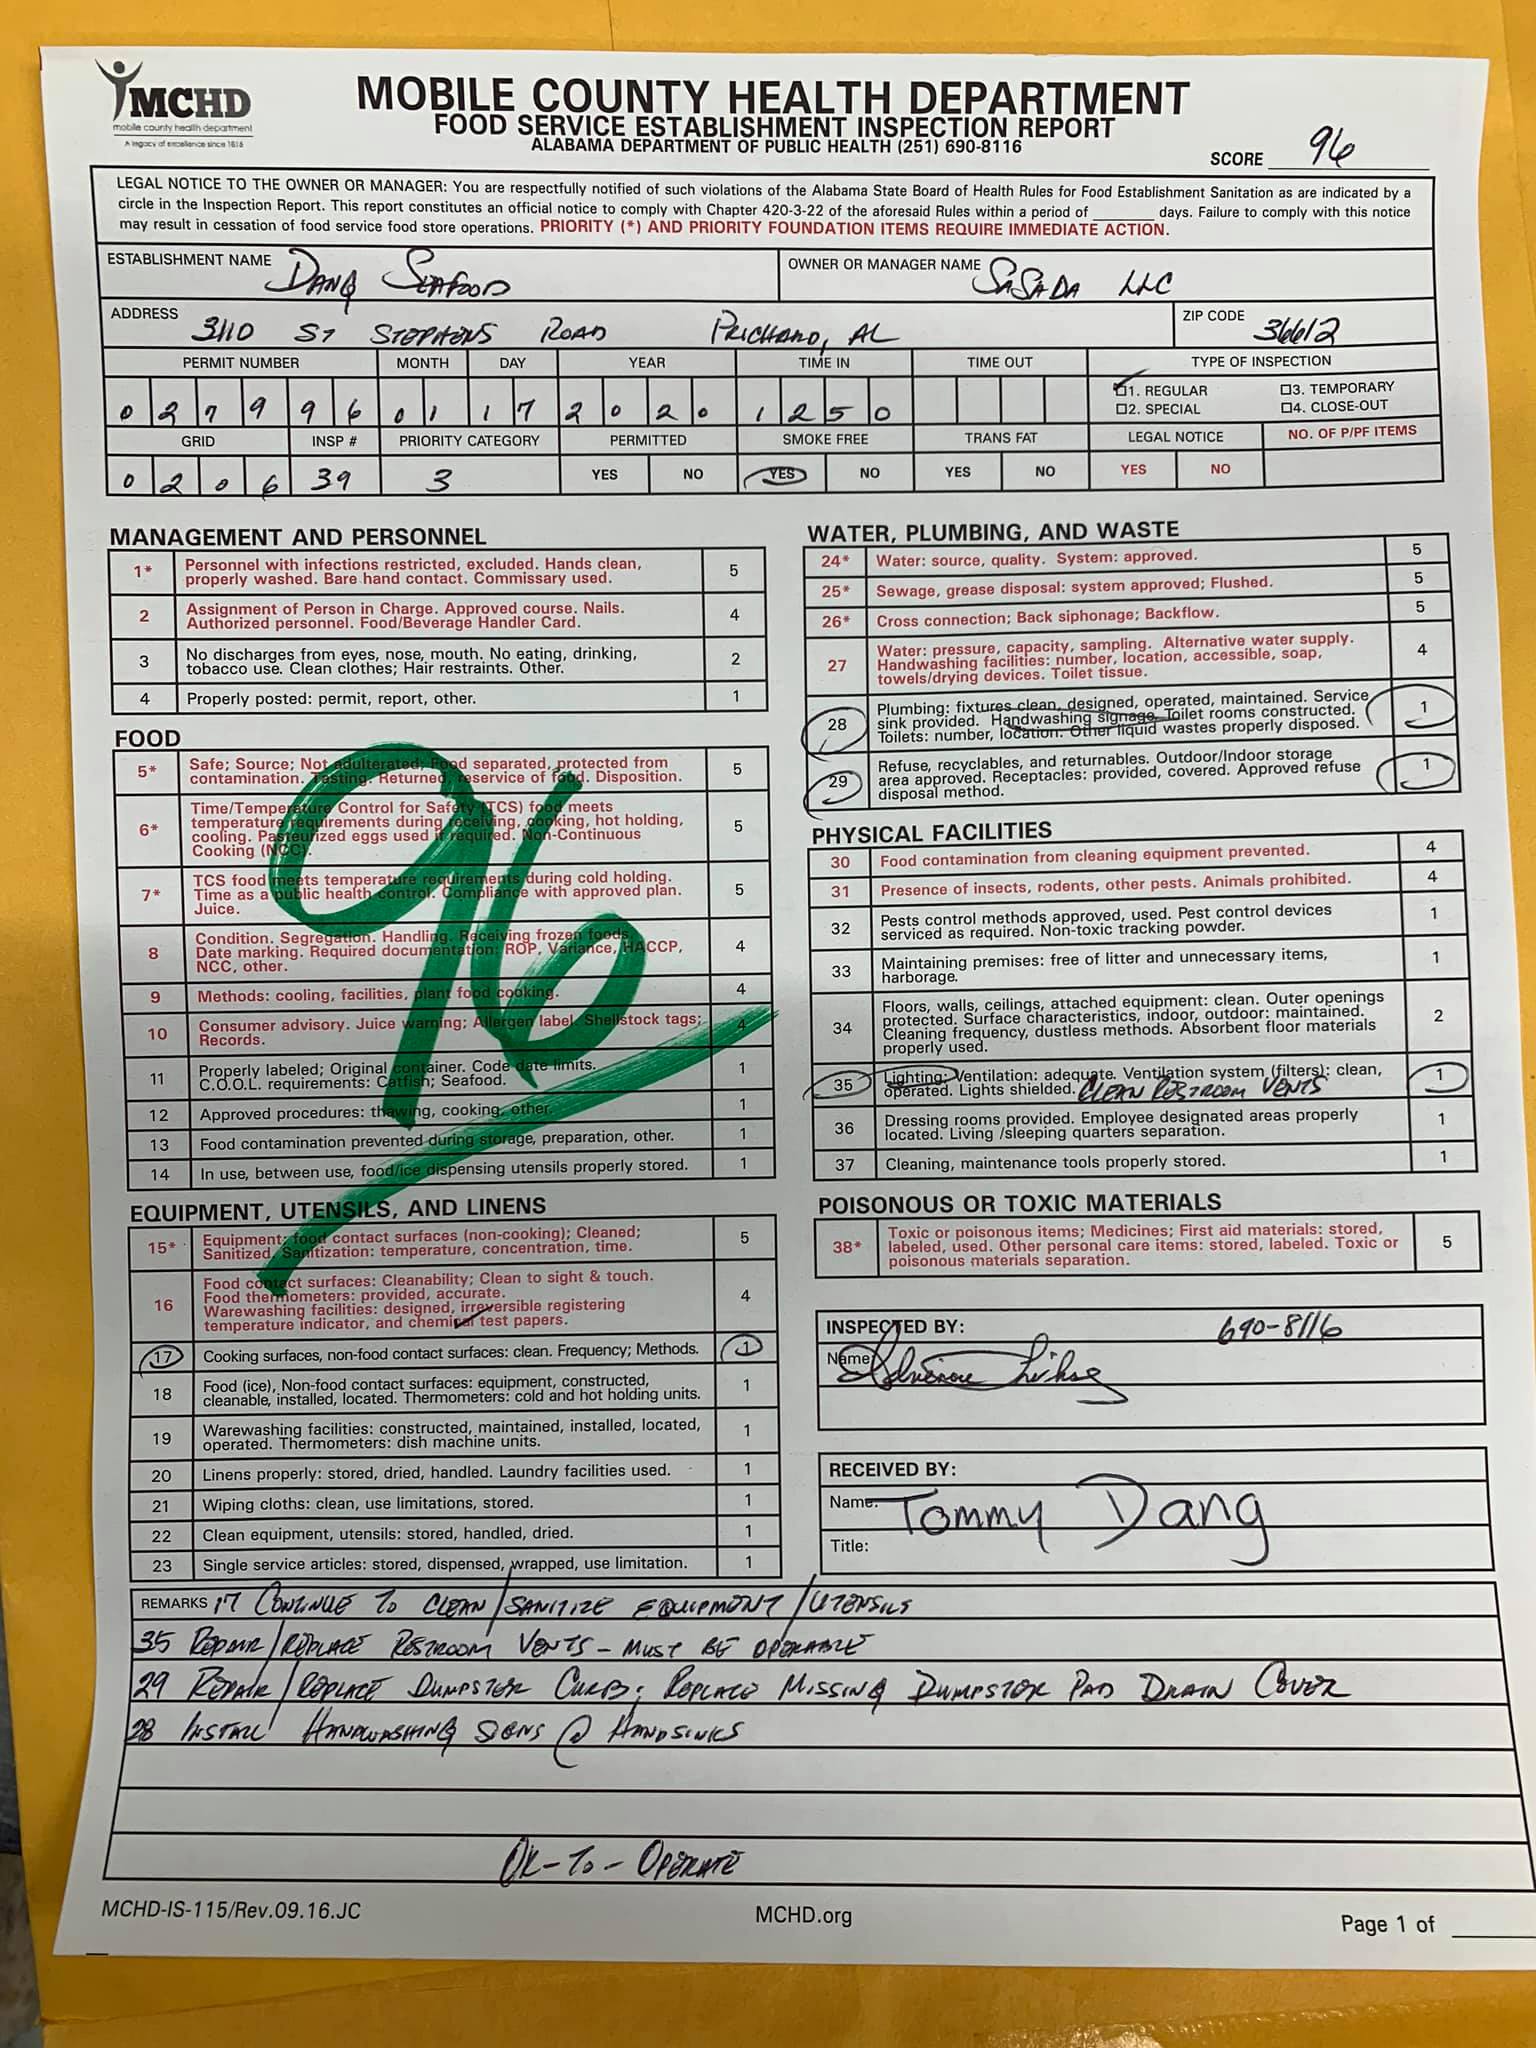 MCHD
mobile county health department
A legacy of excellence since 1816
MOBILE COUNTY HEALTH DEPARTMENT
FOOD SERVICE ESTABLISHMENT INSPECTION REPORT
ALABAMA DEPARTMENT OF PUBLIC HEALTH (251) 690-8116
SCORE 96
LEGAL NOTICE TO THE OWNER OR MANAGER: You are respectfully notified of such violations of the Alabama State Board of Health Rules for Food Establishment Sanitation as are indicated by a
circle in the Inspection Report. This report constitutes an official notice to comply with Chapter 420-3-22 of the aforesaid Rules within a period of ______ days. Failure to comply with this notice
may result in cessation of food service food store operations. PRIORITY (*) AND PRIORITY FOUNDATION ITEMS REQUIRE IMMEDIATE ACTION.
ESTABLISHMENT NAME DANG SEAFOOD
OWNER OR MANAGER NAME SASADA LLC
ADDRESS 3110 ST STEPHENS ROAD PRICHARD, AL
ZIP CODE 36612
PERMIT NUMBER MONTH DAY YEAR TIME IN TIME OUT TYPE OF INSPECTION
0 2 7 9 9 6 0 1 1 7 2 0 2 0 1 2 5 0
1. REGULAR 3. TEMPORARY
2. SPECIAL 4. CLOSE-OUT
GRID INSP # PRIORITY CATEGORY PERMITTED SMOKE FREE TRANS FAT LEGAL NOTICE NO. OF P/PF ITEMS
0 2 0 6 39 3 YES NO YES NO YES NO YES NO
MANAGEMENT AND PERSONNEL
1* Personnel with infections restricted, excluded. Hands clean,
properly washed. Bare hand contact. Commissary used. 5
2 Assignment of Person in Charge. Approved course. Nails.
Authorized personnel. Food/Beverage Handler Card. 4
3 No discharges from eyes, nose, mouth. No eating, drinking,
tobacco use. Clean clothes; Hair restraints. Other. 2
4 Properly posted: permit, report, other. 1
FOOD
5* Safe; Source; Not adulterated; Food separated, protected from
contamination. Tasting. Returned, reservice of food. Disposition. 5
6* Time/Temperature Control for Safety (TCS) food meets
temperature requirements during receiving, cooking, hot holding,
cooling. Pasteurized eggs used if required. Non-Continuous
Cooking (NCC). 5
7* TCS food meets temperature requirements during cold holding.
Time as a public health control. Compliance with approved plan.
Juice. 5
8 Condition. Segregation. Handling. Receiving frozen foods.
Date marking. Required documentation: ROP, Variance, HACCP,
NCC, other. 4
9 Methods: cooling, facilities, plant food cooking. 4
10 Consumer advisory. Juice warning; Allergen label. Shellstock tags;
Records. 4
11 Properly labeled; Original container. Code date limits.
C.O.O.L. requirements: Catfish; Seafood. 1
12 Approved procedures: thawing, cooking, other. 1
13 Food contamination prevented during storage, preparation, other. 1
14 In use, between use, food/ice dispensing utensils properly stored. 1
96
EQUIPMENT, UTENSILS, AND LINENS
15* Equipment; food contact surfaces (non-cooking); Cleaned;
Sanitized. Sanitization: temperature, concentration, time. 5
16 Food contact surfaces: Cleanability; Clean to sight & touch.
Food thermometers: provided, accurate.
Warewashing facilities: designed, irreversible registering
temperature indicator, and chemical test papers. 4
17 Cooking surfaces, non-food contact surfaces: clean. Frequency; Methods. 1
18 Food (ice), Non-food contact surfaces: equipment, constructed,
cleanable, installed, located. Thermometers: cold and hot holding units. 1
19 Warewashing facilities: constructed, maintained, installed, located,
operated. Thermometers: dish machine units. 1
20 Linens properly: stored, dried, handled. Laundry facilities used. 1
21 Wiping cloths: clean, use limitations, stored. 1
22 Clean equipment, utensils: stored, handled, dried. 1
23 Single service articles: stored, dispensed, wrapped, use limitation. 1
WATER, PLUMBING, AND WASTE
24* Water: source, quality. System: approved. 5
25* Sewage, grease disposal: system approved; Flushed. 5
26* Cross connection; Back siphonage; Backflow. 5
27 Water: pressure, capacity, sampling. Alternative water supply.
Handwashing facilities: number, location, accessible, soap,
towels/drying devices. Toilet tissue. 4
28 Plumbing: fixtures clean, designed, operated, maintained. Service
sink provided. Handwashing signage. Toilet rooms constructed.
Toilets: number, location. Other liquid wastes properly disposed. 1
29 Refuse, recyclables, and returnables. Outdoor/Indoor storage
area approved. Receptacles: provided, covered. Approved refuse
disposal method. 1
PHYSICAL FACILITIES
30 Food contamination from cleaning equipment prevented. 4
31 Presence of insects, rodents, other pests. Animals prohibited. 4
32 Pests control methods approved, used. Pest control devices
serviced as required. Non-toxic tracking powder. 1
33 Maintaining premises: free of litter and unnecessary items,
harborage. 1
34 Floors, walls, ceilings, attached equipment: clean. Outer openings
protected. Surface characteristics, indoor, outdoor: maintained.
Cleaning frequency, dustless methods. Absorbent floor materials
properly used. 2
35 Lighting; Ventilation: adequate. Ventilation system (filters): clean,
operated. Lights shielded. CLEAN RESTROOM VENTS 1
36 Dressing rooms provided. Employee designated areas properly
located. Living /sleeping quarters separation. 1
37 Cleaning, maintenance tools properly stored. 1
POISONOUS OR TOXIC MATERIALS
38* Toxic or poisonous items; Medicines; First aid materials: stored,
labeled, used. Other personal care items: stored, labeled. Toxic or
poisonous materials separation. 5
INSPECTED BY: 690-8116
Name:
RECEIVED BY:
Name: Tommy Dang
Title:
REMARKS 17 CONTINUE TO CLEAN/SANITIZE EQUIPMENT/UTENSILS
35 REPAIR/REPLACE RESTROOM VENTS - MUST BE OPERABLE
29 REPAIR/REPLACE DUMPSTER CURB; REPLACE MISSING DUMPSTER PAD DRAIN COVER
28 INSTALL HANDWASHING SIGNS @ HANDSINKS
OK-TO-OPERATE
MCHD-IS-115/Rev.09.16.JC
MCHD.org
Page 1 of